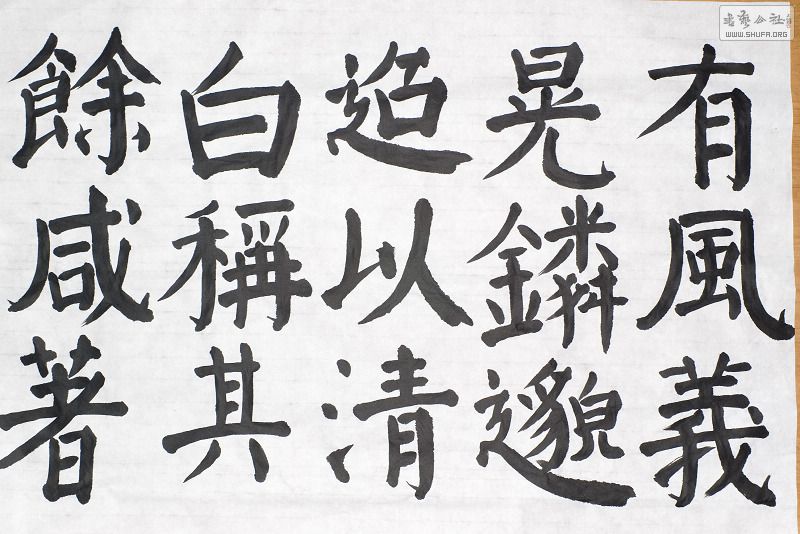 有風義
晃鏻邈
迢以清
白稱其
餘咸著
书艺公社
WWW.SHUFA.ORG